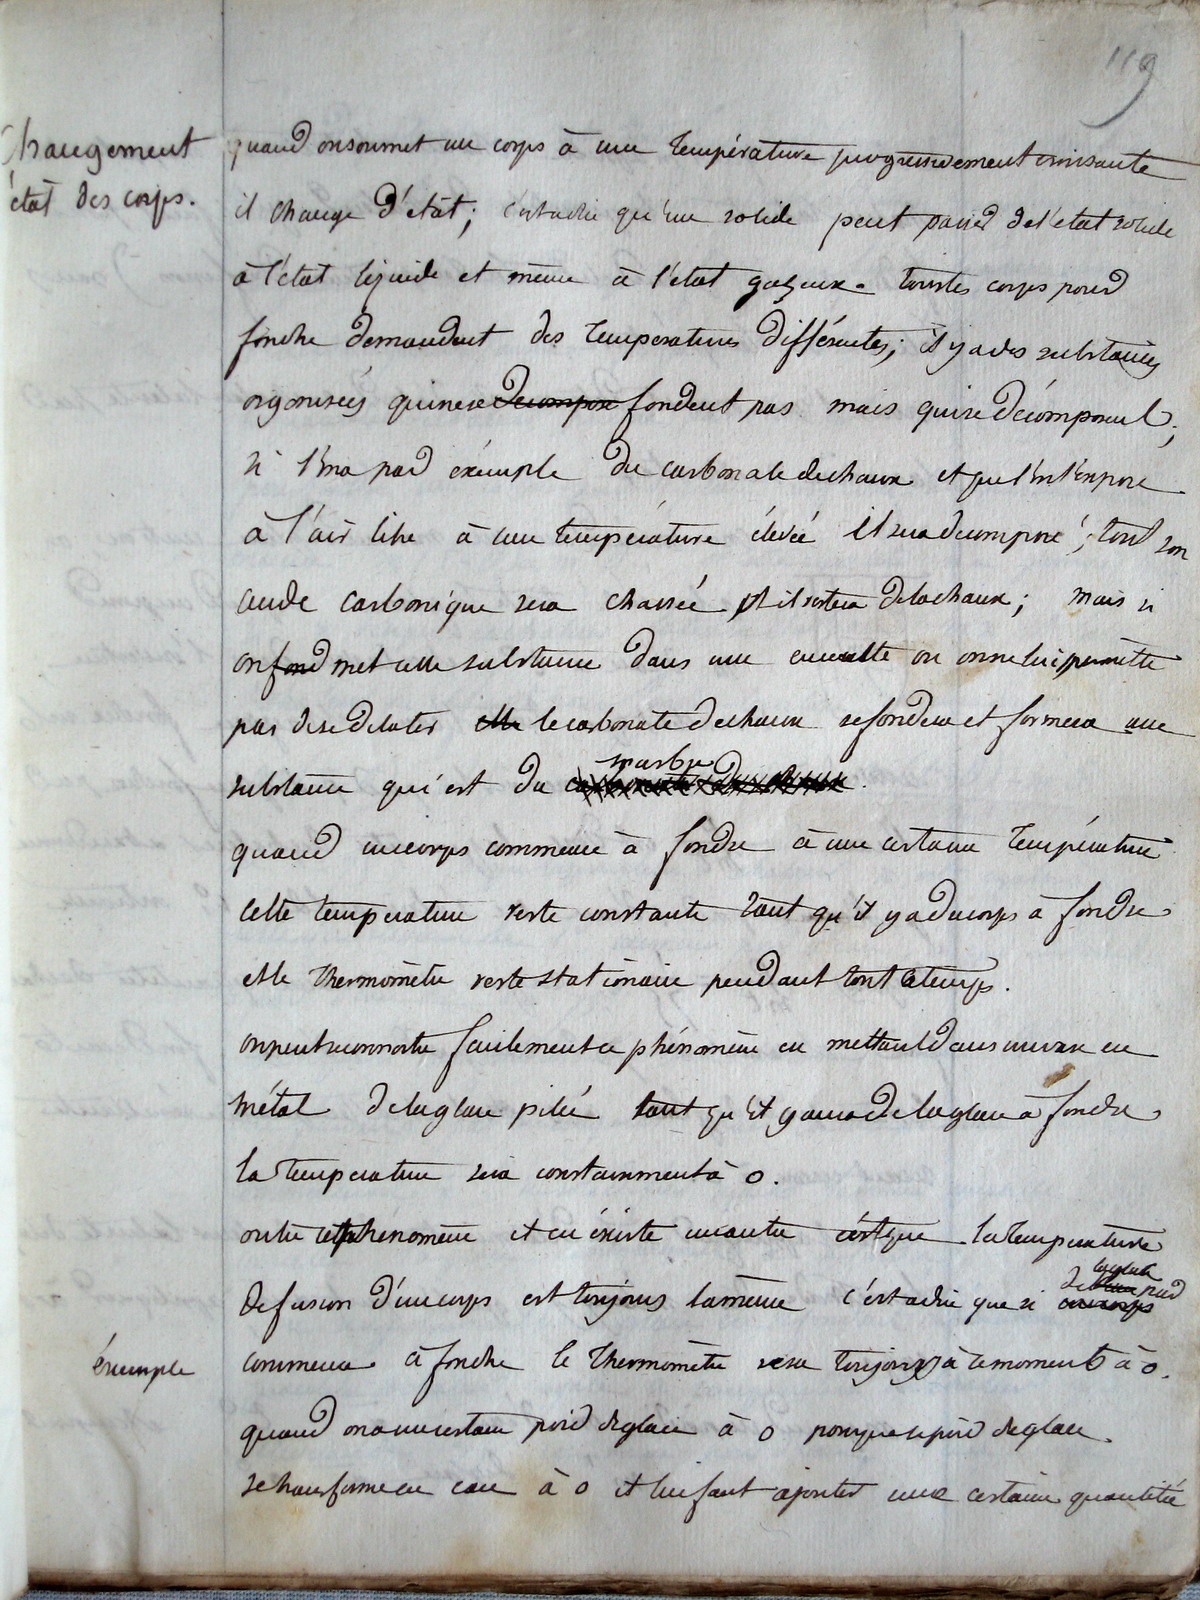 119
Changement
état des corps.
quand on soumet un corps à une température progressivement croissante
il change d'état; c'est a dire qu'un solide peut passer de l'état solide
à l'état liquide et même à l'état gazeux. tous les corps pour
fondre demandent des temperatures différentes; il y a des substances
organisées qui ne se decompose fondent pas mais qui se décomposent;
si l'on a par éxemple du carbonate de chaux et que l'on l'expose
à l'air libre à une température élevéé il sera decomposé; tout son
acide carbonique sera chassée et il restera de la chaux; mais si
on fond met cette substance dans une enceinte ou on ne lui permette
pas de se dilater elle le carbonate de chaux se fondera et formera une
marbre
substance qui est du carbonate de chaux.
quand un corps commence à fondre à une certaine température
cette temperature reste constante tant qu'il y a du corps à fondre
et le thermomètre reste stationaire pendant tout ce temps.
on peut reconnoitre facilement ce phénomène en mettant dans un vase en
métal de la glace piléé tant qu'il y aura de la glace à fondre
la temperature sera constamment à 0.
outre ce phenomène il en éxiste un autre c'est que la temperature
la glace
de fusion d'un corps est toujours la même c'est a dire que si de l'eau un corps
éxemple
commence à fondre le thermomètre sera toujours à ce moment à 0.
quand on a un certain poid de glace à 0 pour que ce poid de glace
se transforme en eau à 0 il lui faut ajouter une certaine quantitée